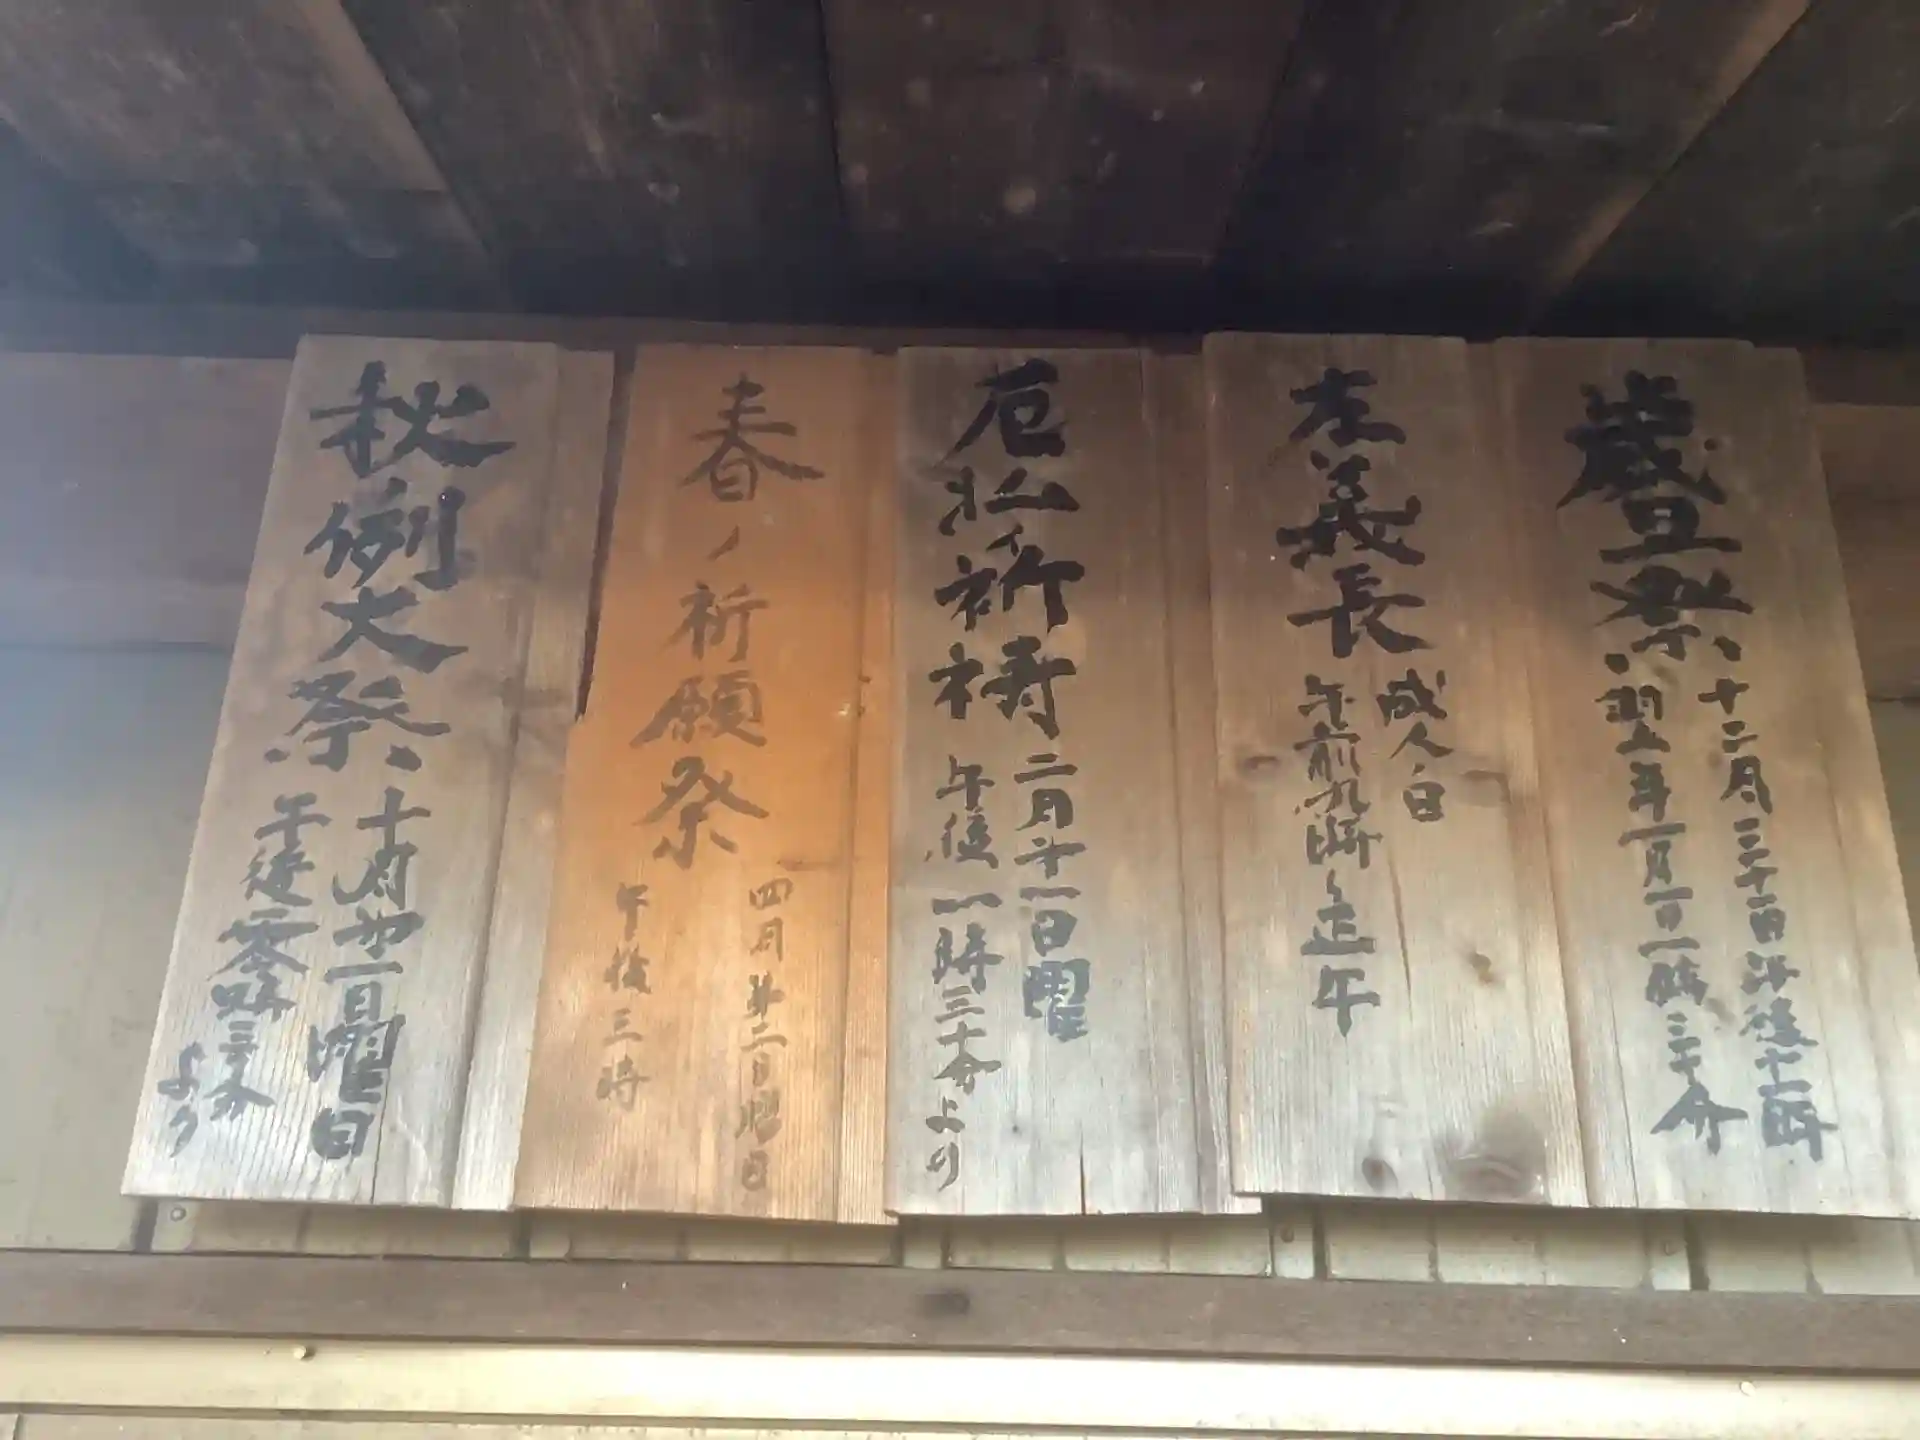 歳旦祭
十二月三十一日午後十一時
翌年一月一日一時三十分
左義長
成人ノ日
午前九時〜正午
厄払イ祈祷
二月第一日曜
午後一時三十分より
春ノ祈願祭
四月第二日曜日
午後三時
秋例大祭
十月第一日曜日
午後零時三十分
より